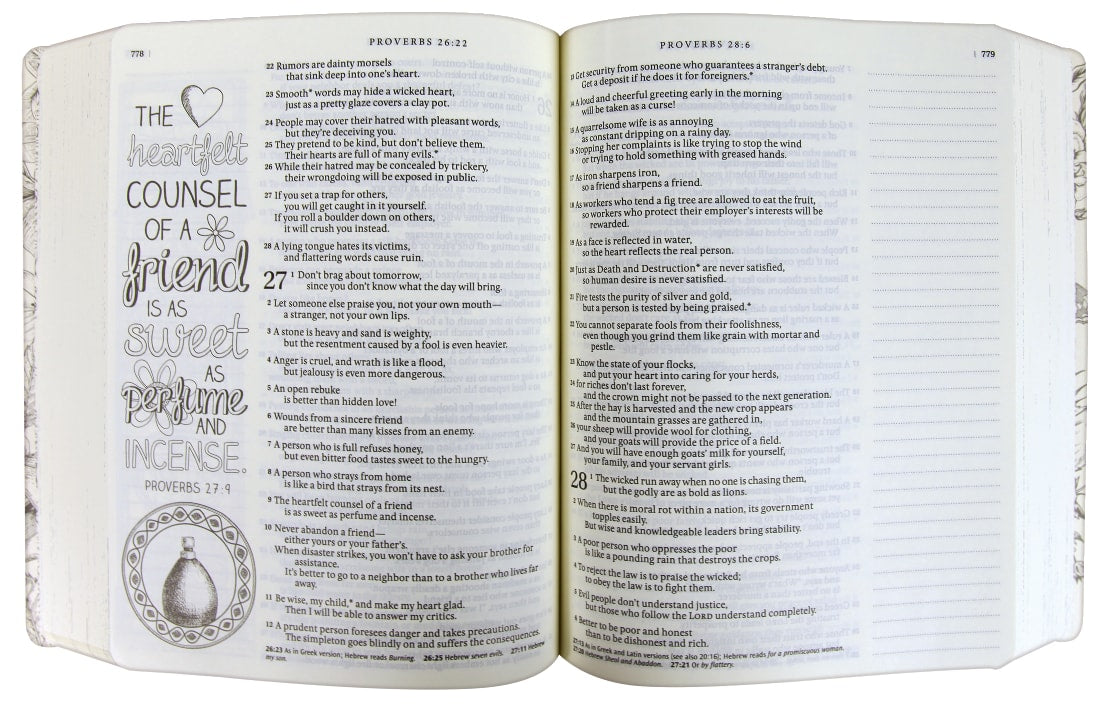 778
PROVERBS 26:22
THE
heartfelt
COUNSEL
OF A
friend
IS AS
sweet
AS
perfume
AND
INCENSE.
PROVERBS 27:9
22 Rumors are dainty morsels
that sink deep into one's heart.
23 Smooth* words may hide a wicked heart,
just as a pretty glaze covers a clay pot.
24 People may cover their hatred with pleasant words,
but they're deceiving you.
25 They pretend to be kind, but don't believe them.
Their hearts are full of many evils.*
26 While their hatred may be concealed by trickery,
their wrongdoing will be exposed in public.
27 If you set a trap for others,
you will get caught in it yourself.
If you roll a boulder down on others,
it will crush you instead.
28 A lying tongue hates its victims,
and flattering words cause ruin.
27 1 Don't brag about tomorrow,
since you don't know what the day will bring.
2 Let someone else praise you, not your own mouth—
a stranger, not your own lips.
3 A stone is heavy and sand is weighty,
but the resentment caused by a fool is even heavier.
4 Anger is cruel, and wrath is like a flood,
but jealousy is even more dangerous.
5 An open rebuke
is better than hidden love!
6 Wounds from a sincere friend
are better than many kisses from an enemy.
7 A person who is full refuses honey,
but even bitter food tastes sweet to the hungry.
8 A person who strays from home
is like a bird that strays from its nest.
9 The heartfelt counsel of a friend
is as sweet as perfume and incense.
10 Never abandon a friend—
either yours or your father's.
When disaster strikes, you won't have to ask your brother for
assistance.
It's better to go to a neighbor than to a brother who lives far
away.
11 Be wise, my child,* and make my heart glad.
Then I will be able to answer my critics.
12 A prudent person foresees danger and takes precautions.
The simpleton goes blindly on and suffers the consequences.
26:23 As in Greek version; Hebrew reads Burning. 26:25 Hebrew seven evils. 27:11 Hebrew
my son.
PROVERBS 28:6
779
13 Get security from someone who guarantees a stranger's debt.
Get a deposit if he does it for foreigners.*
14 A loud and cheerful greeting early in the morning
will be taken as a curse!
15 A quarrelsome wife is as annoying
as constant dripping on a rainy day.
16 Stopping her complaints is like trying to stop the wind
or trying to hold something with greased hands.
17 As iron sharpens iron,
so a friend sharpens a friend.
18 As workers who tend a fig tree are allowed to eat the fruit,
so workers who protect their employer's interests will be
rewarded.
19 As a face is reflected in water,
so the heart reflects the real person.
20 Just as Death and Destruction* are never satisfied,
so human desire is never satisfied.
21 Fire tests the purity of silver and gold,
but a person is tested by being praised.*
22 You cannot separate fools from their foolishness,
even though you grind them like grain with mortar and
pestle.
23 Know the state of your flocks,
and put your heart into caring for your herds,
24 for riches don't last forever,
and the crown might not be passed to the next generation.
25 After the hay is harvested and the new crop appears
and the mountain grasses are gathered in,
26 your sheep will provide wool for clothing,
and your goats will provide the price of a field.
27 And you will have enough goats' milk for yourself,
your family, and your servant girls.
28 1 The wicked run away when no one is chasing them,
but the godly are as bold as lions.
2 When there is moral rot within a nation, its government
topples easily.
But wise and knowledgeable leaders bring stability.
3 A poor person who oppresses the poor
is like a pounding rain that destroys the crops.
4 To reject the law is to praise the wicked;
to obey the law is to fight them.
5 Evil people don't understand justice,
but those who follow the LORD understand completely.
6 Better to be poor and honest
than to be dishonest and rich.
27:13 As in Greek and Latin versions (see also 20:16); Hebrew reads for a promiscuous woman.
27:20 Hebrew Sheol and Abaddon. 27:21 Or by flattery.